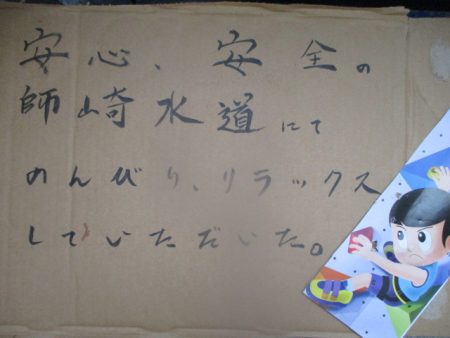 安心、安全の
師崎水道にて
のんびり、リラックス
していただいた。